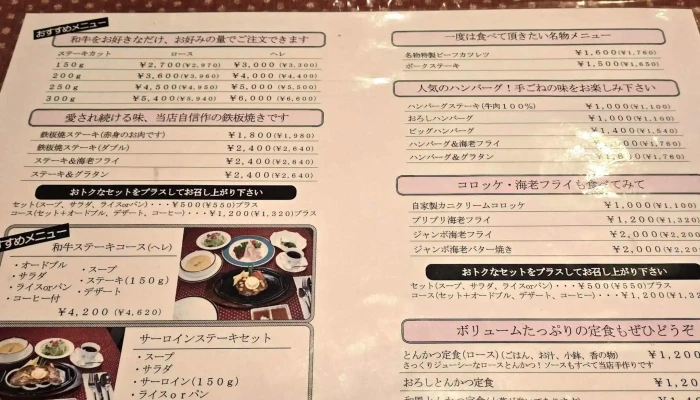 おすすめメニュー
和牛をお好きなだけ、お好みの量でご注文できます
ステーキカット ロース ヘレ
150g ¥2,700(¥2,970) ¥3,000(¥3,300)
200g ¥3,600(¥3,960) ¥4,000(¥4,400)
250g ¥4,500(¥4,950) ¥5,000(¥5,500)
300g ¥5,400(¥5,940) ¥6,000(¥6,600)
愛され続ける味、当店自信作の鉄板焼きです
鉄板焼ステーキ(赤身のお肉です) ¥1,800(¥1,980)
鉄板焼ステーキ(ダブル) ¥2,400(¥2,640)
ステーキ&海老フライ ¥2,400(¥2,640)
ステーキ&グラタン ¥2,400(¥2,640)
おトクなセットをプラスしてお召し上がり下さい
セット(スープ、サラダ、ライスorパン)・・・¥500(¥550)プラス
コース(セット+オードブル、デザート、コーヒー)・・・¥1,200(¥1,320)プラス
すすめメニュー
和牛ステーキコース(ヘレ)
・オードブル ・スープ
・サラダ ・ステーキ(150g)
・ライスorパン ・デザート
・コーヒー付
¥4,200(¥4,620)
サーロインステーキセット
・スープ
・サラダ
・サーロイン(150g)
・ライスorパン
一度は食べて頂きたい名物メニュー
名物特製ビーフカツレツ ¥1,600(¥1,760)
ポークステーキ ¥1,500(¥1,650)
人気のハンバーグ!手ごねの味をお楽しみ下さい
ハンバーグステーキ(牛肉100%) ¥1,000(¥1,100)
おろしハンバーグ ¥1,000(¥1,100)
ビッグハンバーグ ¥1,400(¥1,540)
ハンバーグ&海老フライ
ハンバーグ&グラタン
コロッケ・海老フライも食べてみて
自家製カニクリームコロッケ ¥1,000(¥1,100)
プリプリ海老フライ ¥1,200(¥1,320)
ジャンボ海老フライ ¥2,000(¥2,200
ジャンボ海老バター焼き ¥2,000(¥2,200
おトクなセットをプラスしてお召し上がり下さい
セット(スープ、サラダ、ライスorパン)・・・¥500(¥550)プラス
コース(セット+オードブル、デザート、コーヒー)・・・¥1,200(¥1,32
ボリュームたっぷりの定食もぜひどうぞ
とんかつ定食(ロース)(ごはん、お汁、小鉢、香の物) ¥1,200
さっくりジューシーなロースとんかつ!ソースもすべて当店手作りです
おろしとんかつ定食 ¥1,20